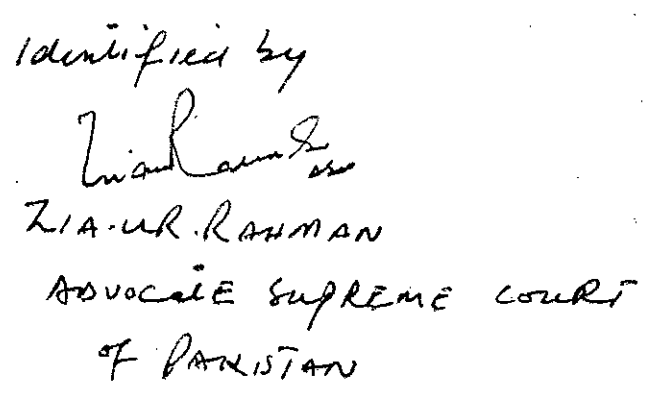 Identified by
ZIA.UR.RAHMAN
ADVOCATE SUPREME COURT
of PAKISTAN